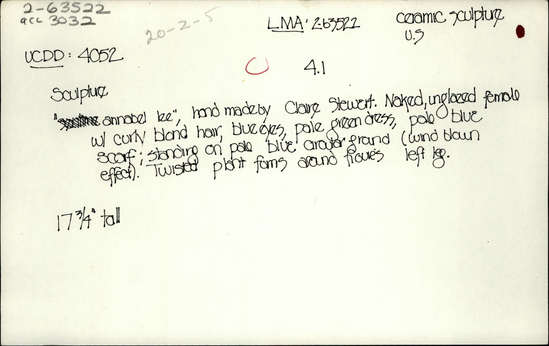 2-63522
acc 3032
20-2-5
LMA: 2-63522
ceramic sculpture
U.S
UCDD: 4052
4.1
Sculpture
"annabel lee", hand made by Claire Stewert. Naked, unglazed female
w/ curly blond hair, blue eyes, pale green dress, pale blue
scarf; standing on pale blue circular ground (wind blown
effect). Twisted plant forms around figures left leg.
17 3/4" tall